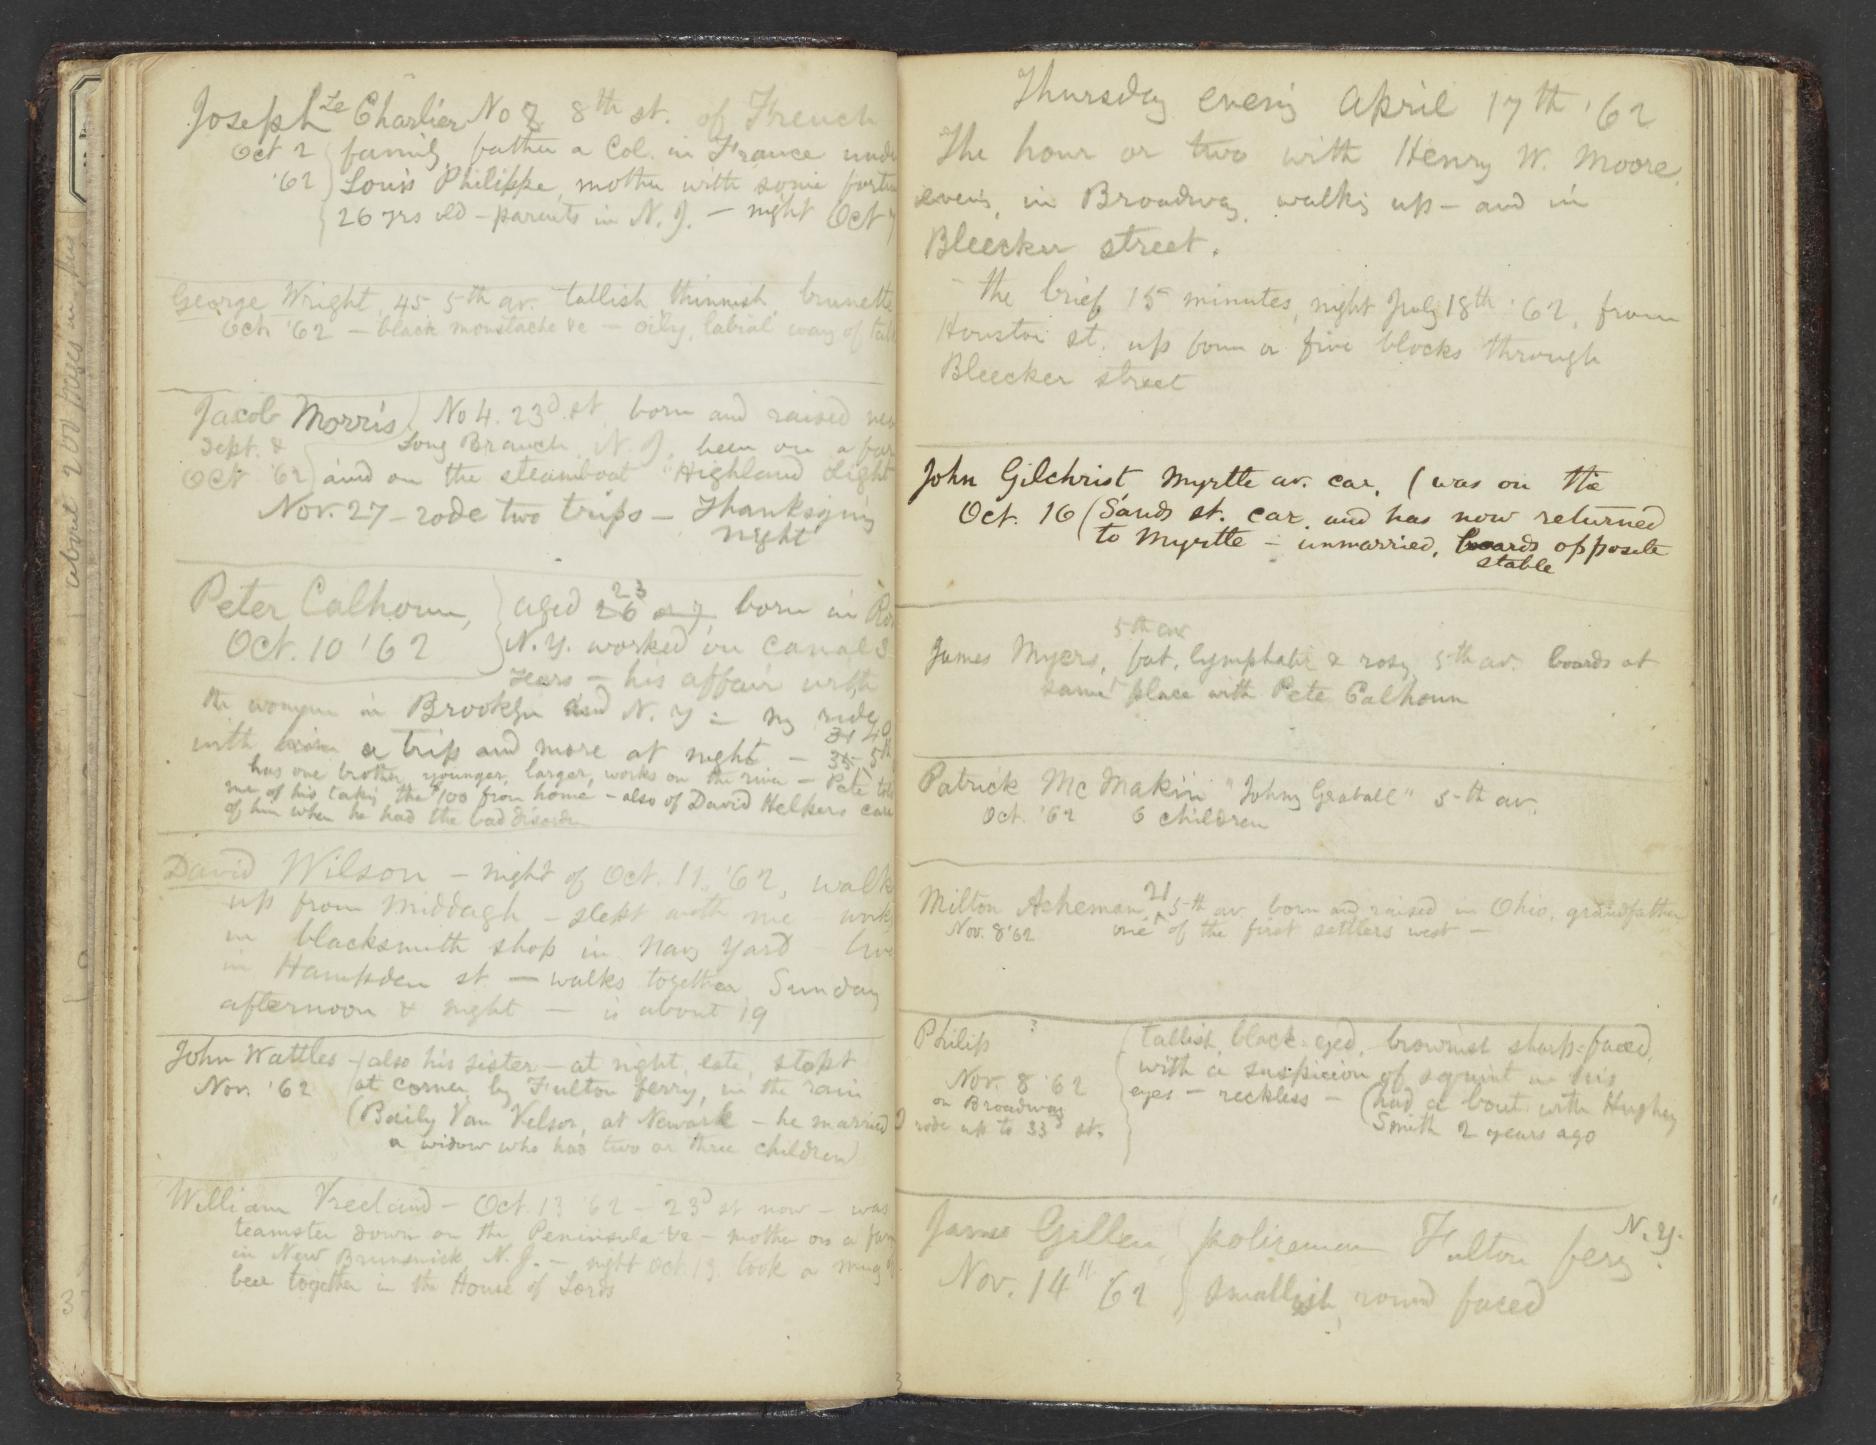 Joseph Le Charlier No 7 8th st. of French
Oct 2 family, father a Col. in France unde
'62 Louis Philippe, mother with some fortu
26 yrs old – parents in N. J. – night Oct
George Wright, 45 5th av. tallish, thinnish, brunette
Oct. '62 – black moustache &c – oily, labial way of talk
Jacob Morris No 4. 23d st. born and raised nea
Sept. & Long Branch, N. J. been on a far
Oct '62 and on the steamboat "Highland Light
Nov. 27 – rode two trips – Thanksgiving
night
23
Peter Calhoun, aged 26 or 7, born in Ro
Oct. 10 '62 N. Y. worked on canal 3
years – his affair with
the woman in Brooklyn and N. Y – my ride
31 40
with him a trip and more at night – 35, 5th
has one brother, younger, larger, works on the river – Pete told
me of his taking the $100 from home – also of David Helkers care
of him when he had the bad disorder
David Wilson – night of Oct. 11, '62, walk
up from Middagh – slept with me – works
in blacksmith shop in Navy Yard – live
in Hampden st. – walks together Sunday
afternoon & night – is about 19
John Wattles – (also his sister – at night, late, stopt
Nov. '62 at corner, by Fulton ferry, in the rain
(Baily Van Velsor, at Newark – he married
a widow who has two or three children)
William Vreeland – Oct. 13 '62 – 23d st now – was
teamster down on the Peninsula &c – mother on a farm
in New Brunswick N. J. – night Oct. 13. took a mug of
beer together in the House of Lords
Thursday evening April 17th '62
The hour or two with Henry W. Moore,
evening, in Broadway, walking up – and in
Bleecker street.
– the brief 15 minutes, night July 18th '62, from
Houston st. up four or five blocks through
Bleecker street
John Gilchrist Myrtle av. car, (was on the
Oct. 16 (Sands st. car, and has now returned
to Myrtle – unmarried, boards opposite
stable
5th av
James Myers, fat, lymphatic & rosy, 5th av. boards at
same place with Pete Calhoun
Patrick McMakin "Johny Graball" 5th av.
Oct. '62 6 children
Milton Acheman, 21 5th av. born and raised in Ohio, grandfather
Nov. 8 '62 one of the first settlers west –
Philip ? tallish, black-eyed, brownish sharp-faced,
Nov. 8 '62 with a suspicion of squint in his
on Broadway eyes – reckless – (had a bout with Hughey
I rode up to 33d st. Smith 2 years ago
James Gillen, policeman Fulton ferry N. Y.
Nov. 14" 62 smallish, round faced